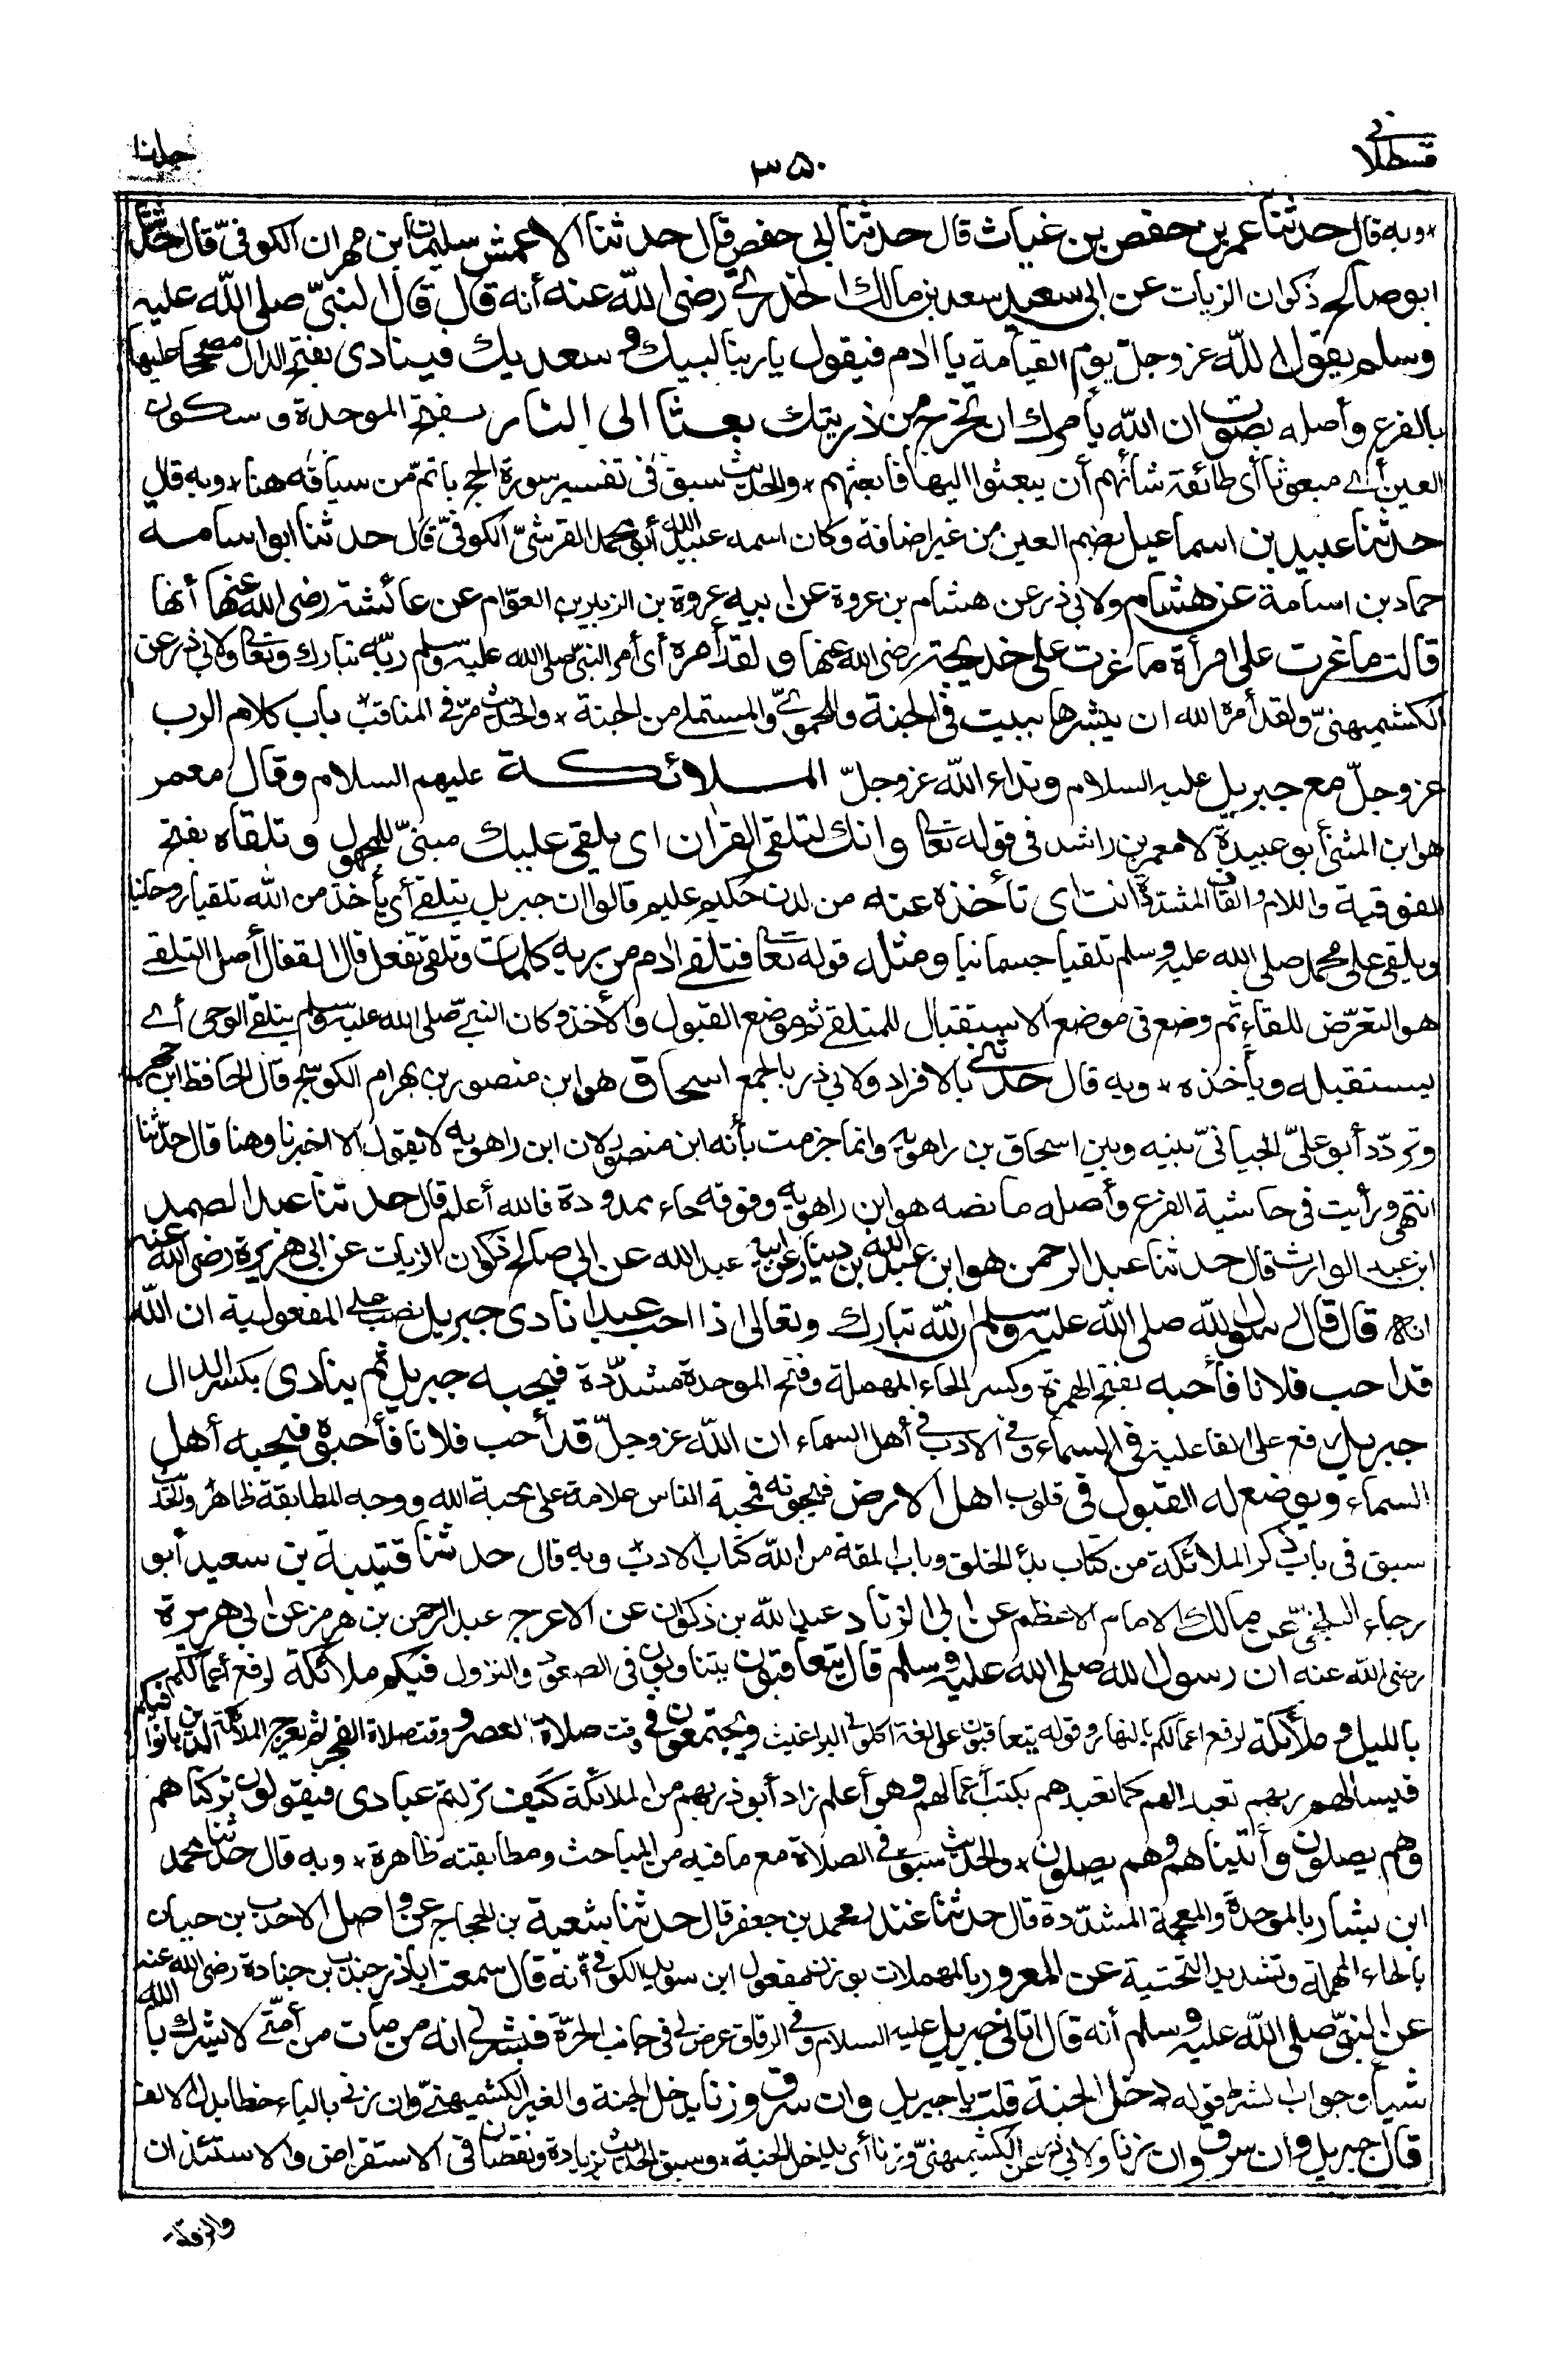 قسطلانی
۳۵۰
* وبه قال حدثنا عمر بن حفص بن غياث قال حدثنا ابي حفص قال حدثنا الاعمش سليمان بن مهران الكوفيّ قال حدّثنا
ابو صالح ذكوان الزيات عن ابي سعيد سعد بن مالك الخدري رضى الله عنه أنه قال قال النبيّ صلى الله عليه
وسلم يقول الله عز وجلّ يوم القيامة يا ادم فيقول يا ربنا لبيك و سعديك فينادى بفتح الدال مصححا عليها
بالفرع وأصله بصوت ان الله يأمرك ان تخرج من ذريتك بعثا الى النار بفتح الموحدة وسكون
العين أي مبعوثا أى طائفة شأنهم أن يبعثوا اليها فابعثهم * والحديث سبق فى تفسير سورة الحج باتمّ من سياقه هنا * وبه قال
حدثنا عبيد بن اسماعيل بضم العين من غير اضافة وكان اسمه عبيد الله أبو محمد القرشىّ الكوفىّ قال حدثنا ابو اسامه
حماد بن اسامة عن هشام ولابي ذر عن هشام بن عروة عن ابيه عروة بن الزبير بن العوّام عن عائشة رضى الله عنها أنها
قالت ما غرت على امرأة ما غرت على خديجة رضى الله عنها و لقد أمره أى أمر النبىّ صلى الله عليه وسلم ربّه تبارك وتعالى ولابى ذر عن
الكشميهنىّ ولقد أمره الله ان يبشرها ببيت فى الجنة وللحمويّ والمستملي من الجنة * والحديث مرّ فى المناقب * باب كلام الرب
عز وجلّ مع جبريل عليه السلام ونداء الله عز وجلّ الملائكة عليهم السلام وقال معمر
هو ابن المثنى أبو عبيدة لا معمر بن راشد فى قوله تعالى وانك لتلقى القران اى يلقى عليك مبنىّ للمجهول وتلقاه بفتح
الفوقية واللام والقاف المشددة انت اى تأخذه عنه من لدن حكيم عليم قالوا ان جبريل يتلقى أى يأخذ من الله تلقيا روحانيا
ويلقى على محمد صلى الله عليه وسلم تلقيا جسمانيا ومثله قوله تعالى فتلقى ادم من ربه كلمات وتلقى تفعل قال القفال أصل التلقى
هو التعرّض للقاء ثم وضع فى موضع الاستقبال للمتلقى ثم موضع القبول والأخذ وكان النبيّ صلى الله عليه وسلم يتلقى الوحى أي
يستقبله ويأخذه * وبه قال حدثني بالافراد ولابي ذر بالجمع اسحاق هو ابن منصور بن بهرام الكوسج قال الحافظ ابن حجر
وتردّد أبو علىّ الجيانىّ بينه وبين اسحاق بن راهويه وانما جزمت بأنه ابن منصور لان ابن راهويه لا يقول الا اخبرنا وهنا قال حدّثنا
انتهى ورأيت فى حاشية الفرع وأصله ما نصه هو ابن راهويه وفوقه حاء ممدودة فالله أعلم قال حدثنا عبد الصمد
ابن عبد الوارث قال حدثنا عبد الرحمن هو ابن عبد الله بن دينار عن ابيه عبد الله عن ابي صالح ذكوان الزيات عن ابى هريرة رضى الله عنه
انه قال قال رسول الله صلى الله عليه وسلم ان الله تبارك وتعالى اذا احب عبدا نادى جبريل نصب على المفعولية ان الله
قد احب فلانا فأحبه بفتح الهمزة وكسر الحاء المهملة وفتح الموحدة مشدّدة فيحبه جبريل ثم ينادى بكسر الدال
جبريل رفع على الفاعلية فى السماء وفى الادب فى أهل السماء ان الله عز وجلّ قد أحب فلانا فأحبوه فيحبه أهل
السماء ويوضع له القبول فى قلوب اهل الارض فيحبونه فمحبة الناس علامة على محبة الله ووجه المطابقة ظاهر والحديث
سبق فى باب ذكر الملائكة من كتاب بدأ الخلق وباب المقة من الله كتاب الادب * وبه قال حدثنا قتيبة بن سعيد أبو
رجاء البلخىّ عن مالك الامام الاعظم عن ابي الزناد عبد الله بن ذكوان عن الاعرج عبد الرحمن بن هرمز عن ابى هريرة
رضى الله عنه ان رسول الله صلى الله عليه وسلم قال يتعاقبون يتناوبون فى الصعود والنزول فيكم ملائكة لرفع أعمالكم فيكم
بالليل و ملائكة لرفع اعمالكم بالنهار وقوله يتعاقبون على لغة اكلونى البراغيث ويجتمعون فى وقت صلاة العصر و وقت صلاة الفجر ثم يعرج الملائكة الذين باتوا
فيسألهم ربهم تعبدا لهم كما تعبدهم بكتب أعمالهم وهو أعلم زاد أبو ذر بهم من الملائكة كيف تركتم عبادى فيقولون تركناهم
وهم يصلون وأتيناهم وهم يصلون * والحديث سبق فى الصلاة مع ما فيه من المباحث ومطابقته ظاهرة * وبه قال حدثنا محمد
ابن بشار بالموحدة والمعجمة المشدّدة قال حدثنا غندر محمد بن جعفر قال حدثنا شعبة بن الحجاج عن واصل الاحدب بن حيان
بالحاء المهملة وتشديد التحتية عن المعرور بالمهملات بوزن مفعول ابن سويد الكوفى أنه قال سمعت اباذر جندب بن جنادة رضى الله عنه
عن النبىّ صلى الله عليه وسلم أنه قال اتانى جبريل عليه السلام وفى الرقاق عرض لى فى جانب الحرّة فبشرنى انه من مات من أمّتي لا يشرك بالله
شيأ وجواب الشرط قوله دخل الجنة قلت يا جبريل وان سرق وزنا يدخل الجنة ولغير الكشميهنىّ وان زنى بالياء خطا بدل الالف
قال جبريل وان سرق وان زنا ولابى ذر عن الكشميهنىّ وزنا أى يدخل الجنة * وسبق الحديث بزيادة ونقصان فى الاستقراض والاستئذان
والرقاق